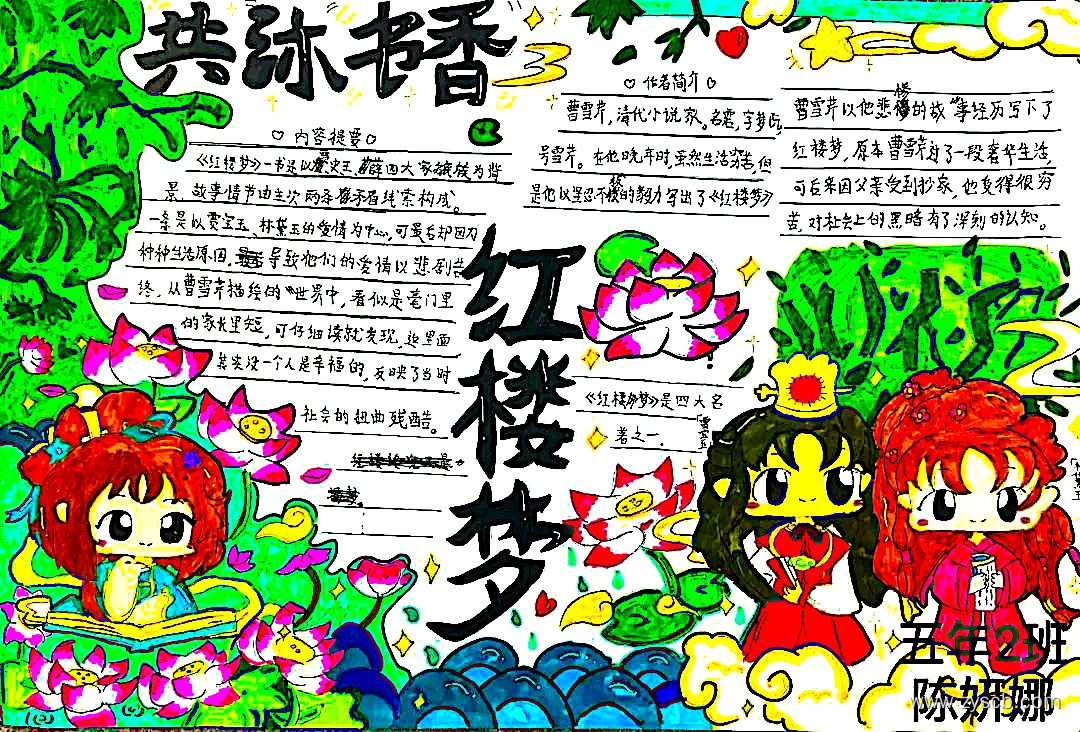 共沐书香
♡ 内容提要 ♡
《红楼梦》一书是以贾史王薛四大家族为背
景，故事情节由主次两条矛盾线索构成。
一条是以贾宝玉、林黛玉的爱情为中心，可最后却因为
种种生活原因，导致他们的爱情以悲剧告
终，从曹雪芹描绘的世界中，看似是豪门里
的家长里短，可仔细读就发现，这里面
其实没一个人是幸福的，反映了当时
社会的扭曲残酷。
红楼梦
♡ 作者简介 ♡
曹雪芹，清代小说家。名霑，字梦阮
号雪芹。在他晚年时，虽然生活穷苦，但
是他以坚忍不拔的毅力写出了《红楼梦》
曹雪芹以他悲惨的故事经历写下了
红楼梦，原本曹雪芹过了一段奢华生活，
可后来因父亲受到抄家，他变得很穷
苦，对社会上的黑暗有了深刻的认知。
《红楼梦》是四大名
著之一.
五年2班
陈妍娜